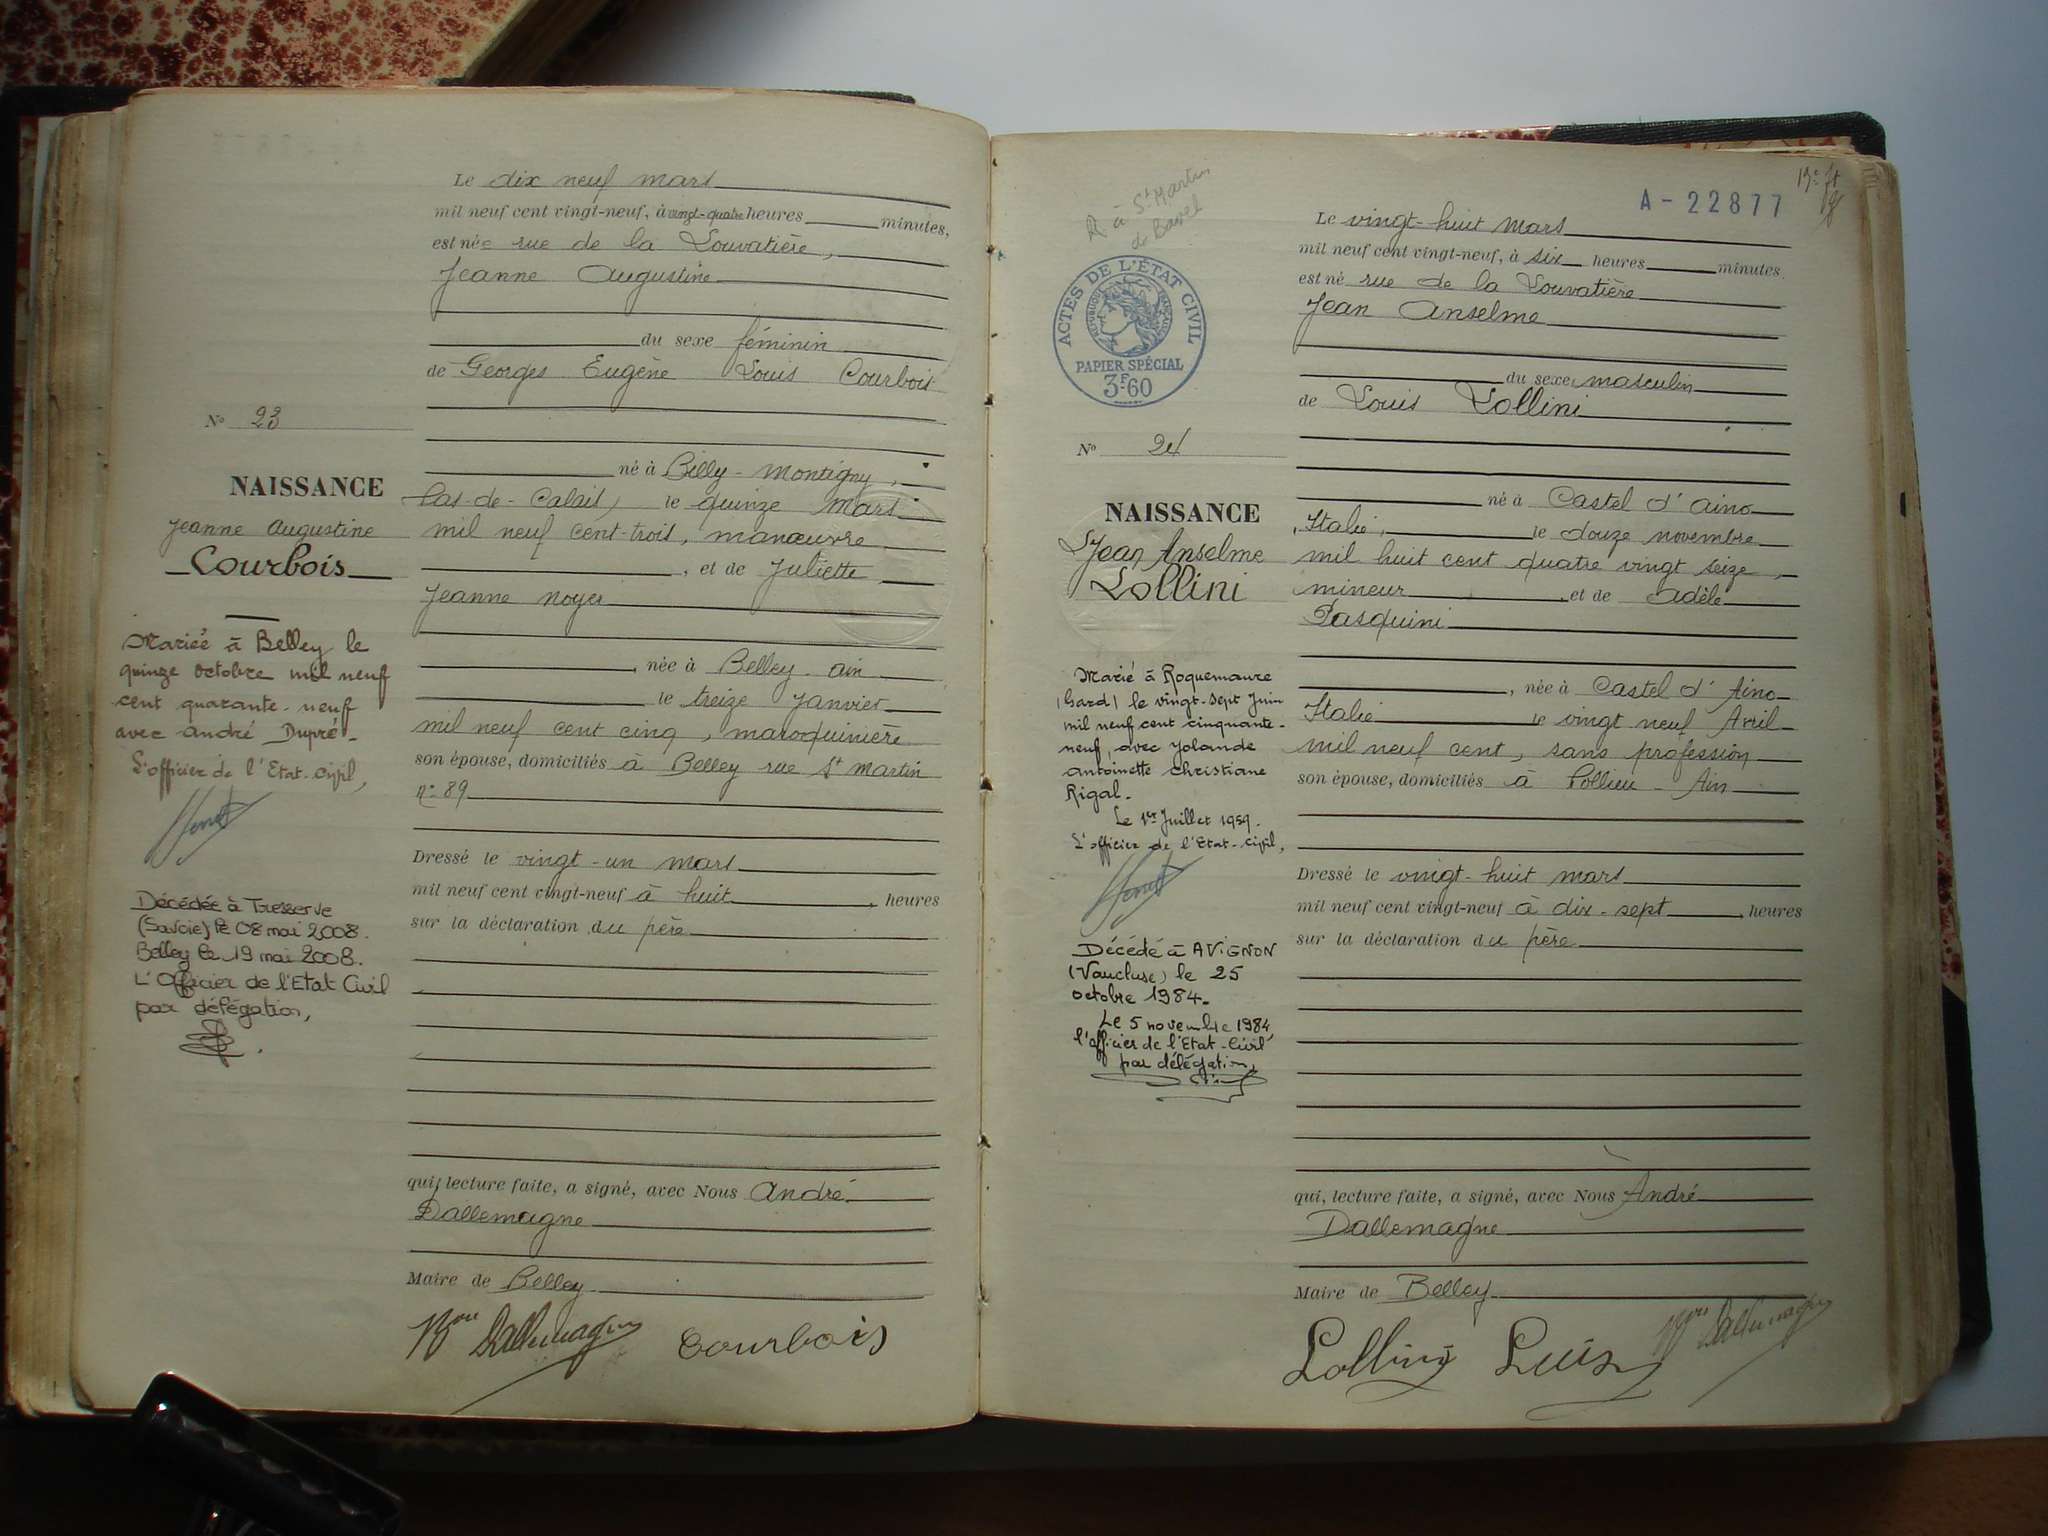 Le dix neuf mars
mil neuf cent vingt-neuf, à vingt-quatre heures minutes,
est née rue de la Louvatière,
Jeanne Augustine
du sexe féminin
de Georges Eugène Louis Courbois
N° 23
né à Billy-Montigny,
Pas-de-Calais, le quinze mars
mil neuf cent-trois, manœuvre
, et de Juliette
Jeanne Noyer
née à Belley ain
le treize Janvier
mil neuf cent cinq, maroquinière
son épouse, domiciliés à Belley rue St martin
n° 89
Dressé le vingt-un mars
mil neuf cent vingt-neuf à huit heures
sur la déclaration du père
qui, lecture faite, a signé, avec Nous André
Dallemagne
Maire de Belley
Dallemagne Courbois
NAISSANCE
Jeanne Augustine
Courbois
Mariée à Belley le
quinze octobre mil neuf
cent quarante-neuf
avec André Dupré-
L'officier de l'Etat-civil,
Décédée à Tresserve
(Savoie) le 08 mai 2008.
Belley le 19 mai 2008.
L'Officier de l'Etat Civil
par délégation,
à St Martin
d Barel
A-22877
ACTES DE L'ÉTAT CIVIL
RÉPUBLIQUE FRANÇAISE
PAPIER SPÉCIAL
3F60
Le vingt-huit mars
mil neuf cent vingt-neuf, à six heures minutes
est né rue de la Louvatière
Jean Anselme
du sexe masculin
de Louis Lollini
N° 24
né à Castel d'aino
Italie, le douze novembre
mil huit cent quatre vingt seize,
mineur et de Adèle
Pasquini
, née à Castel d'Aino
Italie le vingt neuf Avril
mil neuf cent, sans profession
son épouse, domiciliés à Pollieu - Ain
Dressé le vingt-huit mars
mil neuf cent vingt-neuf à dix-sept heures
sur la déclaration du père
qui, lecture faite, a signé, avec Nous André
Dallemagne
Maire de Belley
Lollini Luis Dallemagne
NAISSANCE
Jean Anselme
Lollini
Marié à Roquemaure
(Gard) le vingt-sept Juin
mil neuf cent cinquante-
neuf, avec Yolande
antoinette christiane
Rigal-
Le 1er Juillet 1959.
L'officier de l'Etat-civil,
Décédé à AVIGNON
(Vaucluse) le 25
octobre 1984.
Le 5 novembre 1984
l'officier de l'Etat-Civil
par délégation,